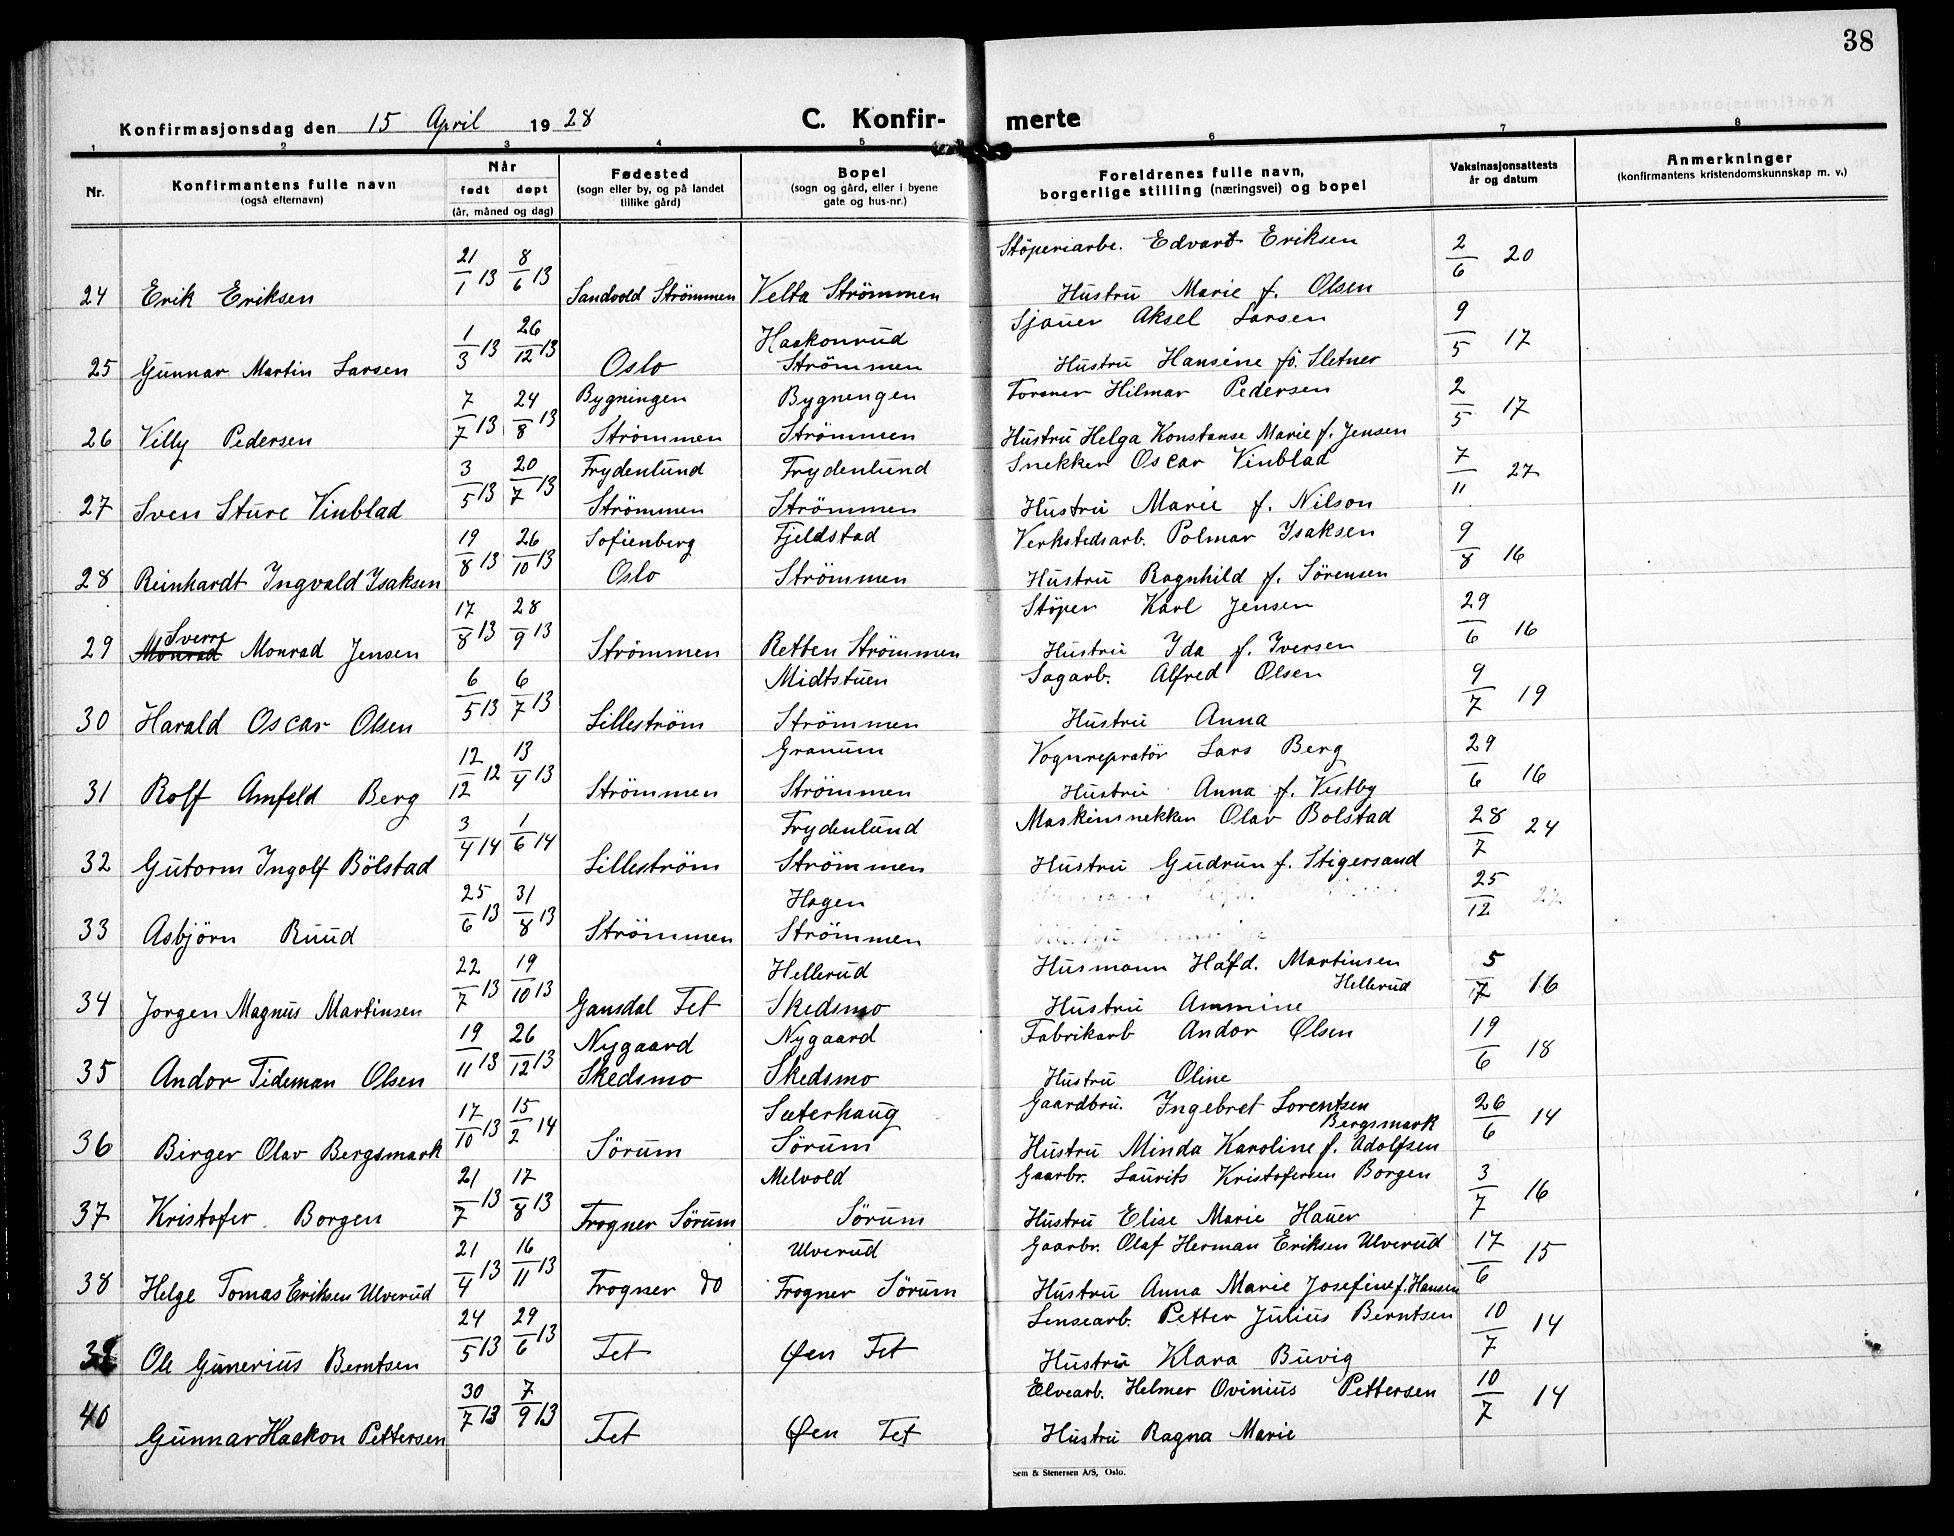 38
Konfirmasjonsdag den 15 April 1928
C. Konfirmerte
1 2 3 4 5 6 7 8
Nr.
Konfirmantens fulle navn
(også efternavn)
Når
født døpt
(år, måned og dag)
Fødested
(sogn eller by, og på landet
tillike gård)
Bopel
(sogn og gård, eller i byene
gate og hus-nr.)
Foreldrenes fulle navn,
borgerlige stilling (næringsvei) og bopel
Vaksinasjonsattests
år og datum
Anmerkninger
(konfirmantens kristendomskunnskap m. v.)
21/1 13 8/6 13 Støperiarbe. Edvart Eriksen 2/6 20
24 Erik Eriksen Sandvold Strömmen Velta Strömmen Hustru Marie f. Olsen
1/3 13 26/12 13 Haakonrud Sjauer Aksel Larsen 9/5 17
25 Gunnar Martin Larsen Oslo Strömmen Hustru Hansine fö. Sletner
7/7 13 24/8 13 Bygningen Bygnengen Torsner Hilmar Pedersen 2/5 17
26 Villy Pedersen Strömmen Strömmen Hustru Helga Konstanse Marie f. Jensen
3/5 13 20/7 13 Frydenlund Frydenlund Snekker Oscar Vinblad 7/11 27
27 Sven Sture Vinblad Strömmen Strömmen Hustru Marie f. Nilson
19/8 13 26/10 13 Sofienberg Fjeldstad Verkstedsarb. Polmar Ysaksen 9/8 16
28 Reinhardt Ingvald Ysaksen Oslo Strömmen Hustru Ragnhild f. Sörensen
17/8 13 28/9 13 Støper Karl Jensen 29/6 16
Sverre
29 Monrad Monrad Jensen Strömmen Retten Strömmen Hustru Ida f. Iversen
6/5 13 6/7 13 Midtstuen Sagarb. Alfred Olsen 9/7 19
30 Harald Oscar Olsen Lilleström Strömmen Hustru Anna
12/12 12 13/4 13 Granum Vognrepratör Lars Berg 29/6 16
31 Rolf Amfeld Berg Strömmen Strömmen Hustru Anna f. Vestby
3/4 14 1/6 14 Frydenlund Maskinsnekker Olav Bolstad 28/7 24
32 Gutorm Ingolf Bölstad Lilleström Strömmen Hustru Gudrun f. Stigersand
25/6 13 31/8 13 Hagen 25/12
33 Asbjörn Ruud Strömmen Strömmen
22/7 13 19/10 13 Hellerud Husmann Halfd. Martinsen 5/7 16
Hellerud
34 Jorgen Magnus Martinsen Gansdal Fet Skedsmo Hustru Ammine
19/11 13 26/12 13 Nygaard Nygaard Fabrikarb Andor Olsen 19/6 18
35 Andor Tideman Olsen Skedsmo Skedsmo Hustru Oline
17/10 13 15/2 14 Sæterhaug Gaardbru. Ingebret Lorentsen 26/6 14
Bergsmark
36 Birger Olav Bergsmark Sörum Sörum Hustru Minda Karoline f. Adolfsen
21/7 13 17/8 13 Melvold Gaarbr. Laurits Kristofersen Borgen 3/7 16
37 Kristofer. Borgen Frogner Sörum Sörum Hustru Elise Marie Hauer
21/4 13 16/11 13 Ulverud Gaarbr. Olaf Herman Eriksen Ulverud 17/6 15
38 Helge Tomas Eriksen Ulverud Frogner do Frogner Sörum Hustru Anna Marie Josefine f. Hansen
24/5 13 29/6 13 Lensearb. Petter Julius Berntsen 10/7 14
39 Ole Gunerius Berntsen Fet Øen Fet Hustru Klara Buvig
30/7 13 7/9 13 Elvearb. Helmer Ovinius Pettersen 10/7 14
40 Gunnar Haakon Pettersen Fet Øen Fet Hustru Ragna Marie
Sem & Stenersen A/S, Oslo.